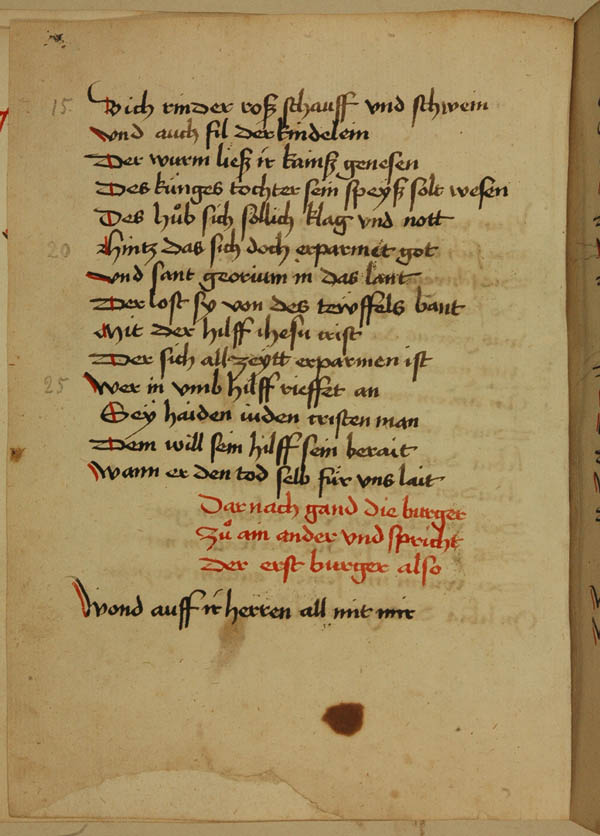 15 Vich rinder roß schauff vnd schwein
vnd auch fil der kindelein
Der wurm ließ ir kainß genesen
Des künges tochter sein speyß solt wesen
Des hůb sich sollich klag vnd nott
20 hintz das sich doch erparmet got
vnd sant georium in das lant
Der lost sy von des tewffels bant
Mit der hilff ihesu crist
Der sich all zeytt erparmen ist
25 Wer in vmb hilff rieffet an
Sey haiden iuden cristen man
Dem will sein hilff sein berait
Wann er den tod selb für vns lait
Dar nach gand die burger
Zů ain ander vnd spricht
Der erst burger also
Wond auff ir herren all mit mir